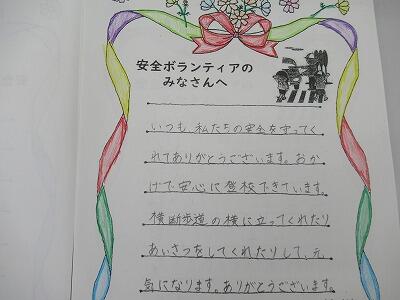 安全ボランティアの
みなさんへ
いつも、私たちの安全を守ってく
れてありがとうございます。おか
げで安心に登校できています。
横断歩道の横に立ってくれたり
あいさつをしてくれたりして、元
気になります。ありがとうございます。